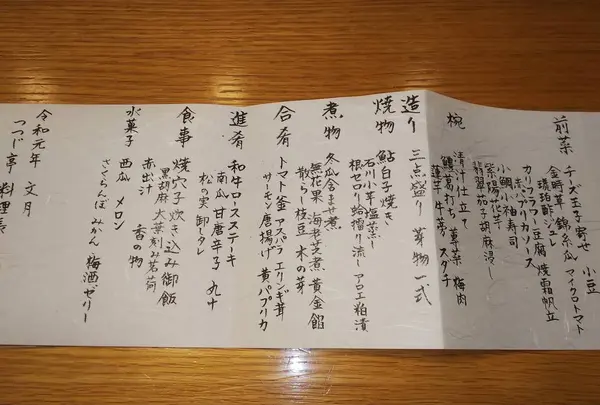 前菜
チーズ玉子寄せ 小豆
金時草 錦糸瓜 マイクロトマト
琥珀酢ジュレ
カリフラワー豆腐 焼霜帆立
赤パプリカソース
小鯛小袖寿司
紫陽花芋
翡翠茄子胡麻浸し
椀
清汁仕立て
鱧葛打ち 蓴菜 梅肉
蓮芋 牛蒡 スダチ
造り
三点盛り 芽物一式
焼物
鮎白子焼き
石川小芋塩蒸し
根セロリ蛤擂り流し アロエ粕漬
煮物
冬瓜含ませ煮
無花果 海老芝煮 黄金餡
散らし枝豆 木の芽
合肴
トマト釜 アスパラ エリンギ茸
サーモン唐揚げ 黄パプリカ
進肴
和牛ロースステーキ
南瓜 甘唐辛子 丸十
松の実卸しタレ
食事
焼穴子炊き込み御飯
黒胡麻 大葉刻み茗荷
赤出汁 香の物
水菓子
西瓜 メロン
さくらんぼ みかん 梅酒ゼリー
令和元年 文月
つつじ亭 料理長